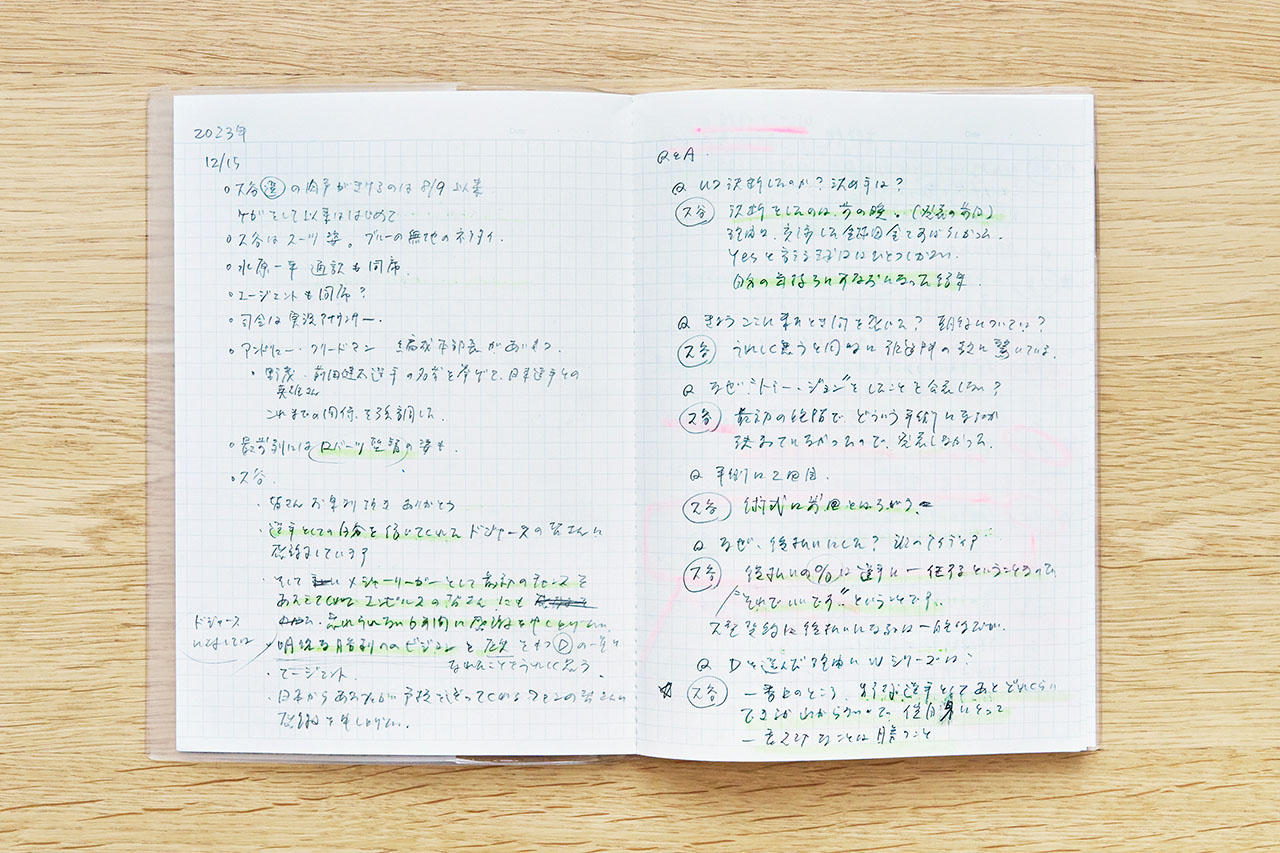 2023年
12/15
○大谷選の肉声がきけるのは8/9以来
ケガをして以来はじめて
○大谷はスーツ姿。ブルーの無地のネクタイ。
○水原一平 通訳も同席。
○エージェントも同席？
○司会は実況アナウンサー。
○アンドリュー・フリードマン 編成本部長があいさつ
・野茂 前田健太選手の名前を挙げて、日本選手との
英雄さん
これまでの関係を強調した。
○最前列にはロバーツ監督の姿も。
○大谷
・皆さんお集り頂きありがとう
・選手としての自分を信じてくれた ドジャースの皆さんに
感謝しています
・そして メジャーリーガーとして最初のチャンスを
あたえてくれた エンゼルスの皆さんにも
忘れられない6年間に感謝を申し上げたい。
ドジャース
に対しては
明確な勝利へのビジョンと 歴史をもつ Ⓓ の一員と
なれたことをうれしく思う
・エージェント。
・日本から
感謝を申し上げたい。
Q&A.
Q いつ決断したのか？ 決め手は？
大谷 決断をしたのは、前の晩。(発表の前日)
理由は、交渉した全球団全てすばらしかった。
Yesと言える球団はひとつしかない。
自分の気持ちにすなおになった結果。
Q きょうここに来たとき何を感じた？ 契約については？
大谷 うれしく思うと同時に 報道陣の数に驚いている。
Q なぜ"トミー・ジョン"をしたことを公表しない？
大谷 最初の段階で、どういう手術になるか
決まっているかったので、発表しなかった。
Q 手術は2回目.
大谷 術式は前回とはちがう。
Q なぜ、後払いにした？ 誰のアイディア
大谷 後払いの%は選手に一任するということなので
"それでいいです"ということです。
大型契約は後払いになるのは一般的だが。
Q Dを選んだ理由はWシリーズは？
☆ 大谷 一番上のところ。野球選手としてあとどれくらい
できるかわからないので、僕自身にとって
一番大切なことは勝つこと